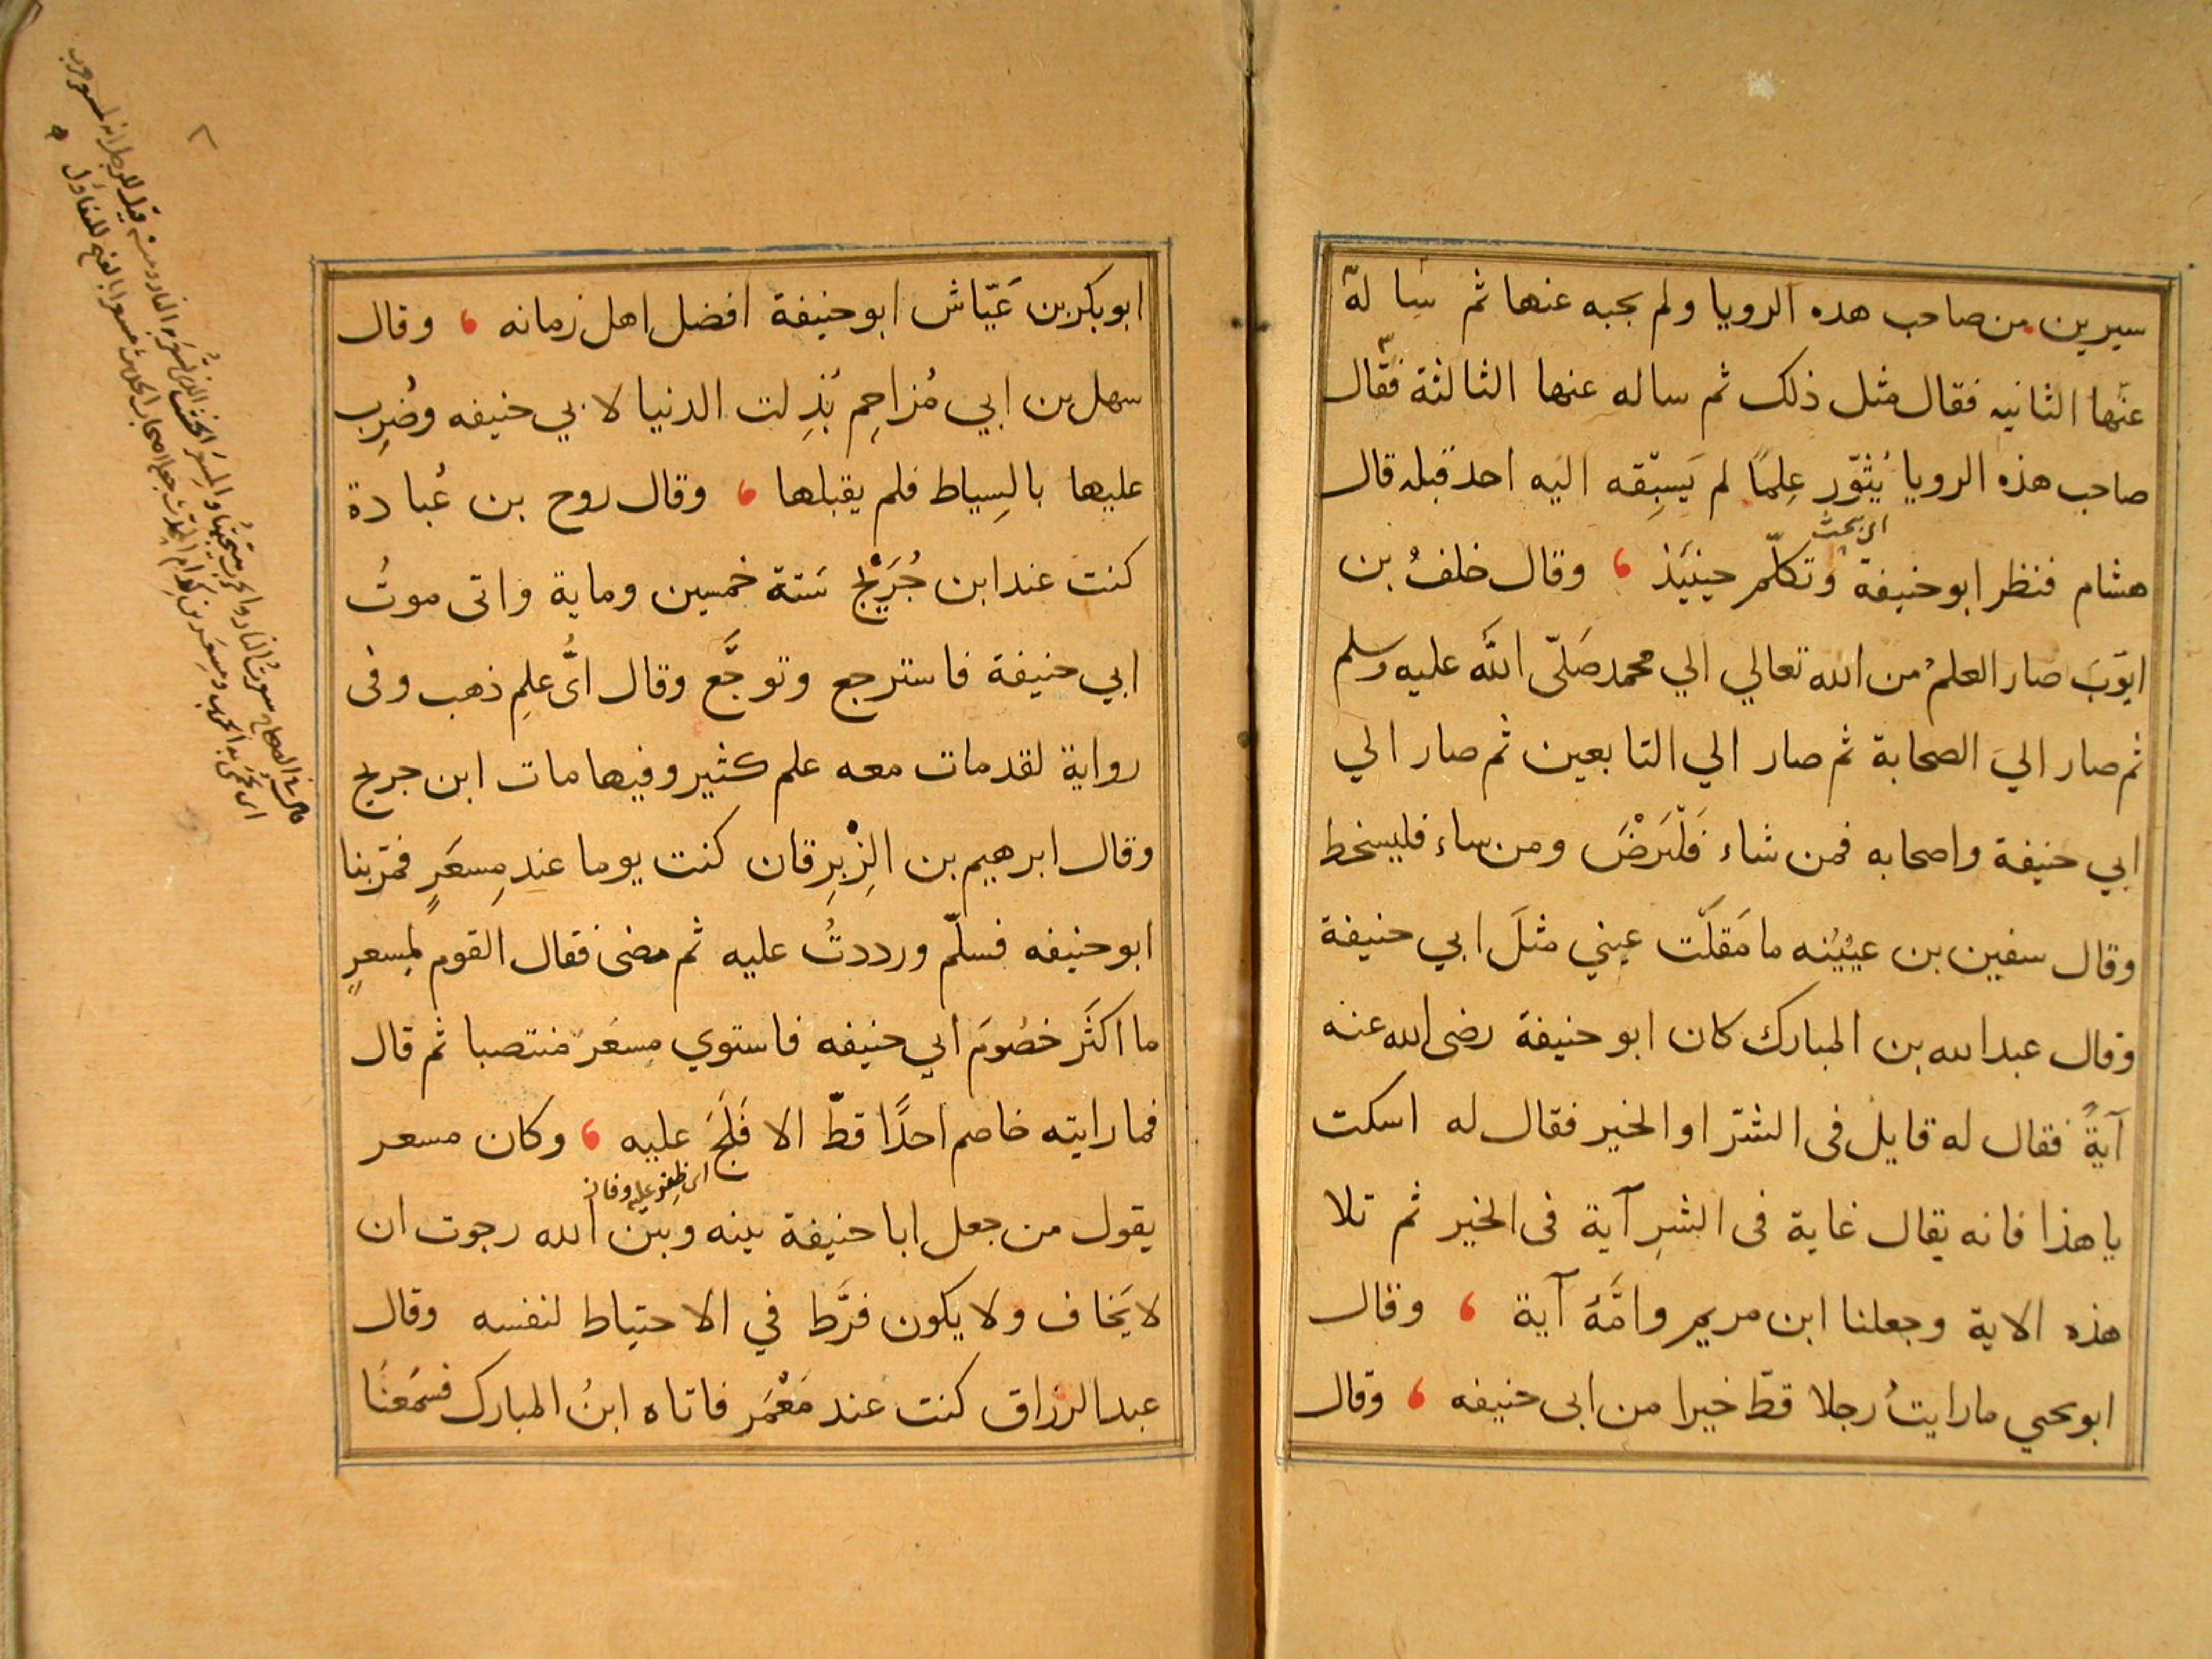 سيرين من صاحب هذه الرويا ولم يجبه عنها ثم سا له
عنها الثانيه فقال مثل ذلك ثم ساله عنها الثالثة فقال
صاحب هذه الرويا يُثوّر عِلمًا لم يَسبِقه اليه احد قبله قال
اى بحث
هشام فنظر ابو حنيفة وتكلّم حينيَذ ، وقال خلفُ بن
ايّوبَ صار العلمُ من الله تعالي الي محمد صَلّى اللَّه عليه وسلم
ثم صار اليَ الصحابة ثم صار الي التابعين ثم صار الي
ابي حنيفة واصحابه فمن شاء فَلْيَرْضَ ومن ساء فليسخط
وقال سفين بن عيُيَنه ما مَقلَت عيني مثلَ ابي حنيفة
وقال عبد الله بن المبارك كان ابو حنيفة رضى الله عنه
آيةً فقال له قايل فى الشرّ او الخير فقال له اسكت
يا هذا فانه يقال غاية فى الشرِ آية فى الخير ثم تلا
هذه الاية وجعلنا ابن مريم وامَّهُ آية ، وقال
ابو يحيي ما رايتُ رجلا قطّ خيرا من ابى حنيفه ، وقال
ابو بكر بن عَيّاش ابو حنيفة افضل اهل زمانه ، وقال
سهل بن ابي مُزاحِم بُذِلت الدنيا لابي حنيفه وضُرِب
عليها بالسِياط فلم يقبلها ، وقال روح بن عُبادة
كنت عند ابن جُرَيْج سَنة خمسين وماية واتى موتُ
ابي حنيفة فاسترجع وتوجَّع وقال اىُّ علمِ ذهب وفى
رواية لقد مات معه علم كثير وفيها مات ابن جريج
وقال ابرهيم بن الزِبْرِقان كنت يوما عند مِسعَرٍ فمرّ بنا
ابو حنيفه فسلّم ورددتُ عليه ثم مضى فقال القوم لمِسعرٍ
ما اكثَر خصُومَ ابي حنيفه فاستوي مسعَر منتصبا ثم قال
فما رايته خاصم احدًا قطّ الا فَلَجَ عليه ، وكان مسعر
اى ظفر عليه وفاز
يقول من جعل ابا حنيفة بينه وبين الله رجوت ان
لا يَخاف ولا يكون فرَّط في الاحتياط لنفسه وقال
عبد الرزاق كنت عند مَعْمَر فاتاه ابنُ المبارك فسمَعنَا